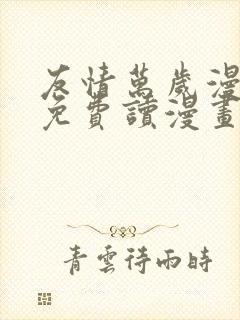 友情萬歲漫
免費讀漫畫
青雲待雨時